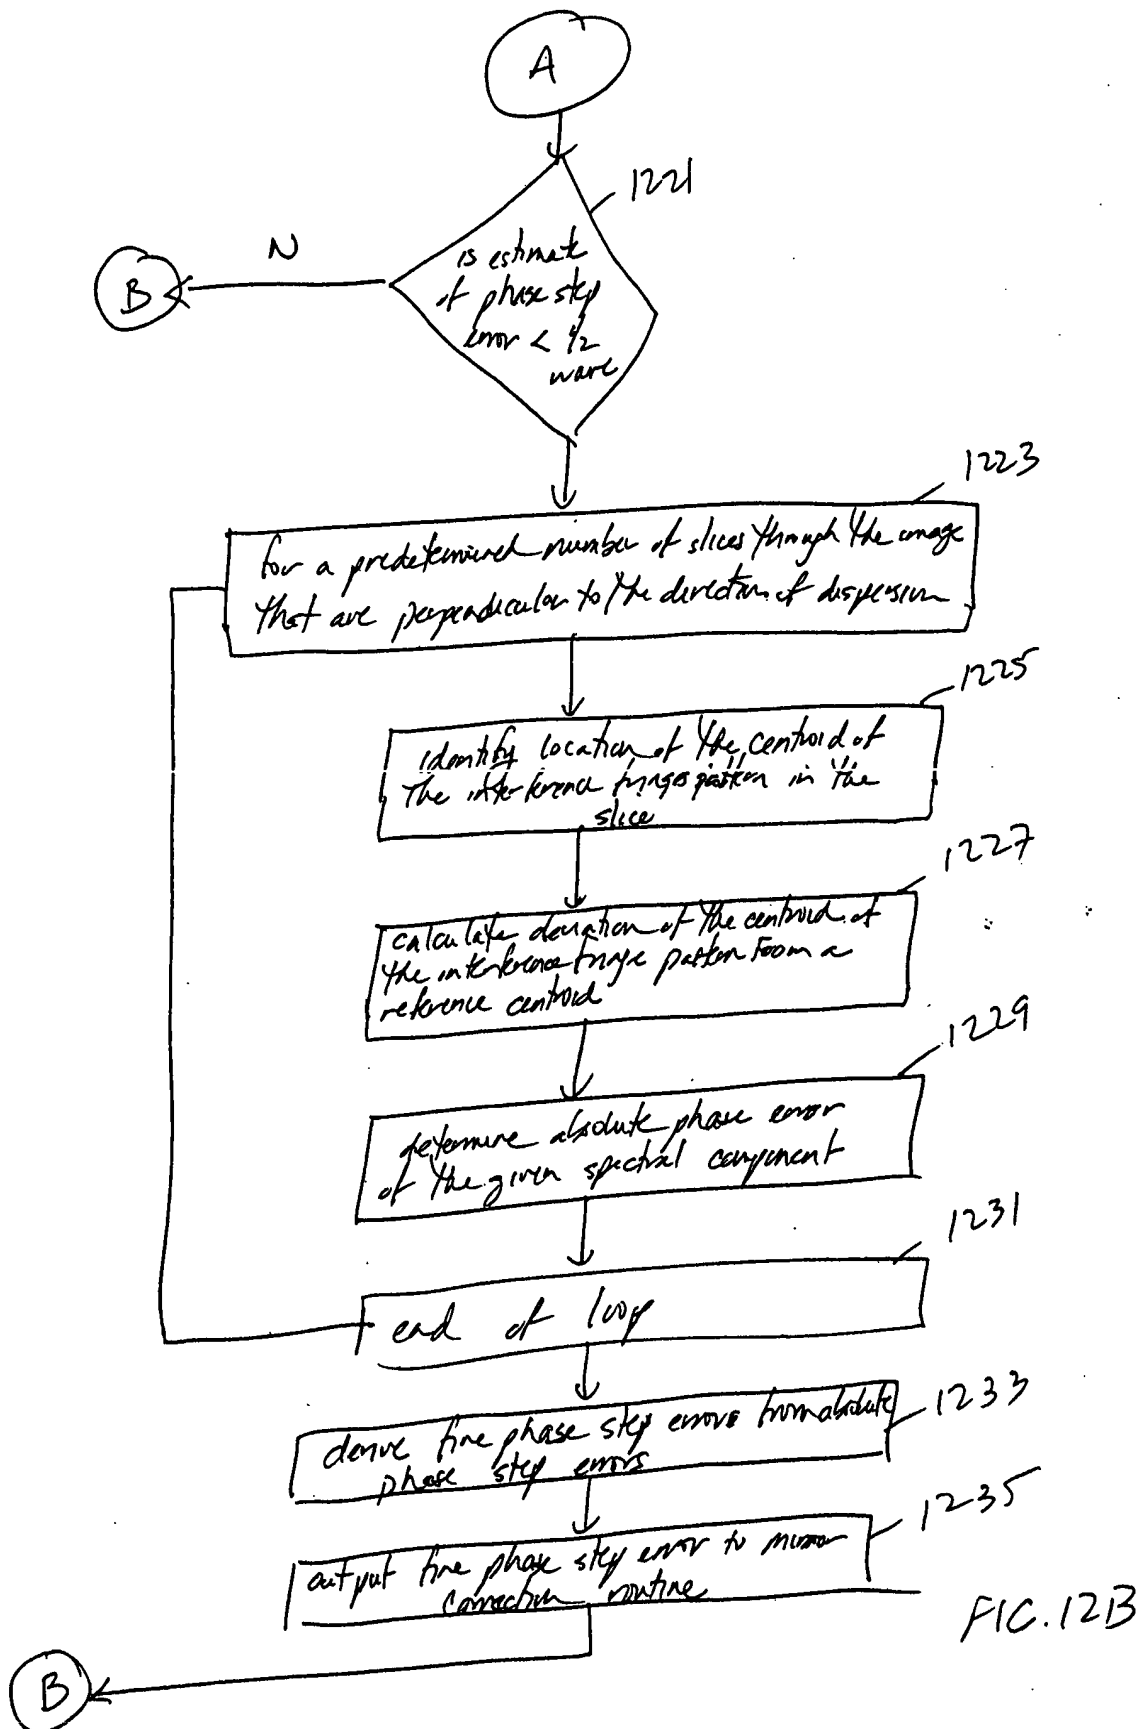 A
1221
N
B
is estimate
of phase step
error < 1/2
wave
1223
for a predetermined number of slices through the image
that are perpendicular to the direction of dispersion
1225
identify location of the centroid of
the interference fringe pattern in the
slice
1227
calculate deviation of the centroid of
the interference fringe pattern from a
reference centroid
1229
determine absolute phase error
of the given spectral component
1231
end of loop
1233
derive fine phase step errors from absolute
phase step errors
1235
output fine phase step error to mirror
correction routine
FIG. 12B
B